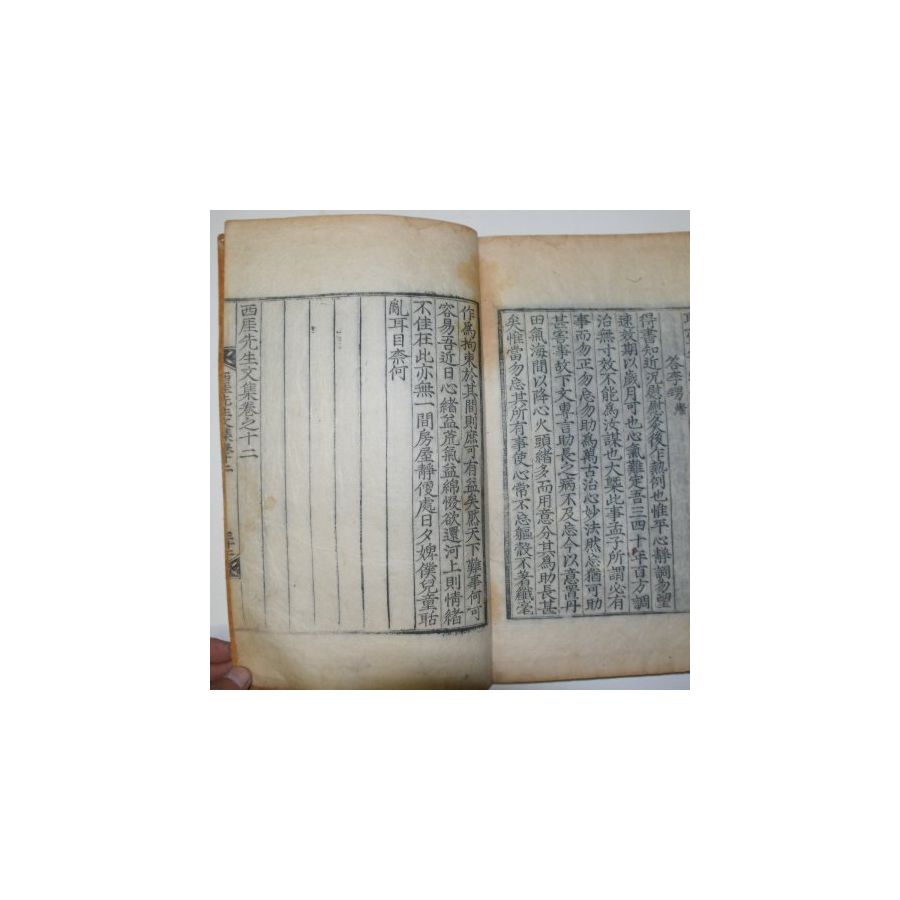 答李
得書知近況慰慰灸後乍熱例也惟平心辭調勿望
速效期以歲月可也心氣難定吾三四十年百方調
治無寸效不能爲汝謀也大槩此事孟子所謂必有
事而勿正勿忘勿助爲萬古治心妙法然忘猶可助
甚害事故下文專言助長之病不及忘今以意當丹
田氣海間以降心火頭緖多而用意分其爲助長甚
矣惟當勿忘其所有事使心常不忘軀殼不著纖毫
作爲拘束於其間則庶可有益矣然天下難事何可
容易吾近日心緖益荒氣益綿惙欲還河上則情緖
不佳在此亦無一間房屋靜便處日夕婢僕兒童聒
亂耳目柰何
西厓先生文集卷之十二
西厓先生文集卷十二